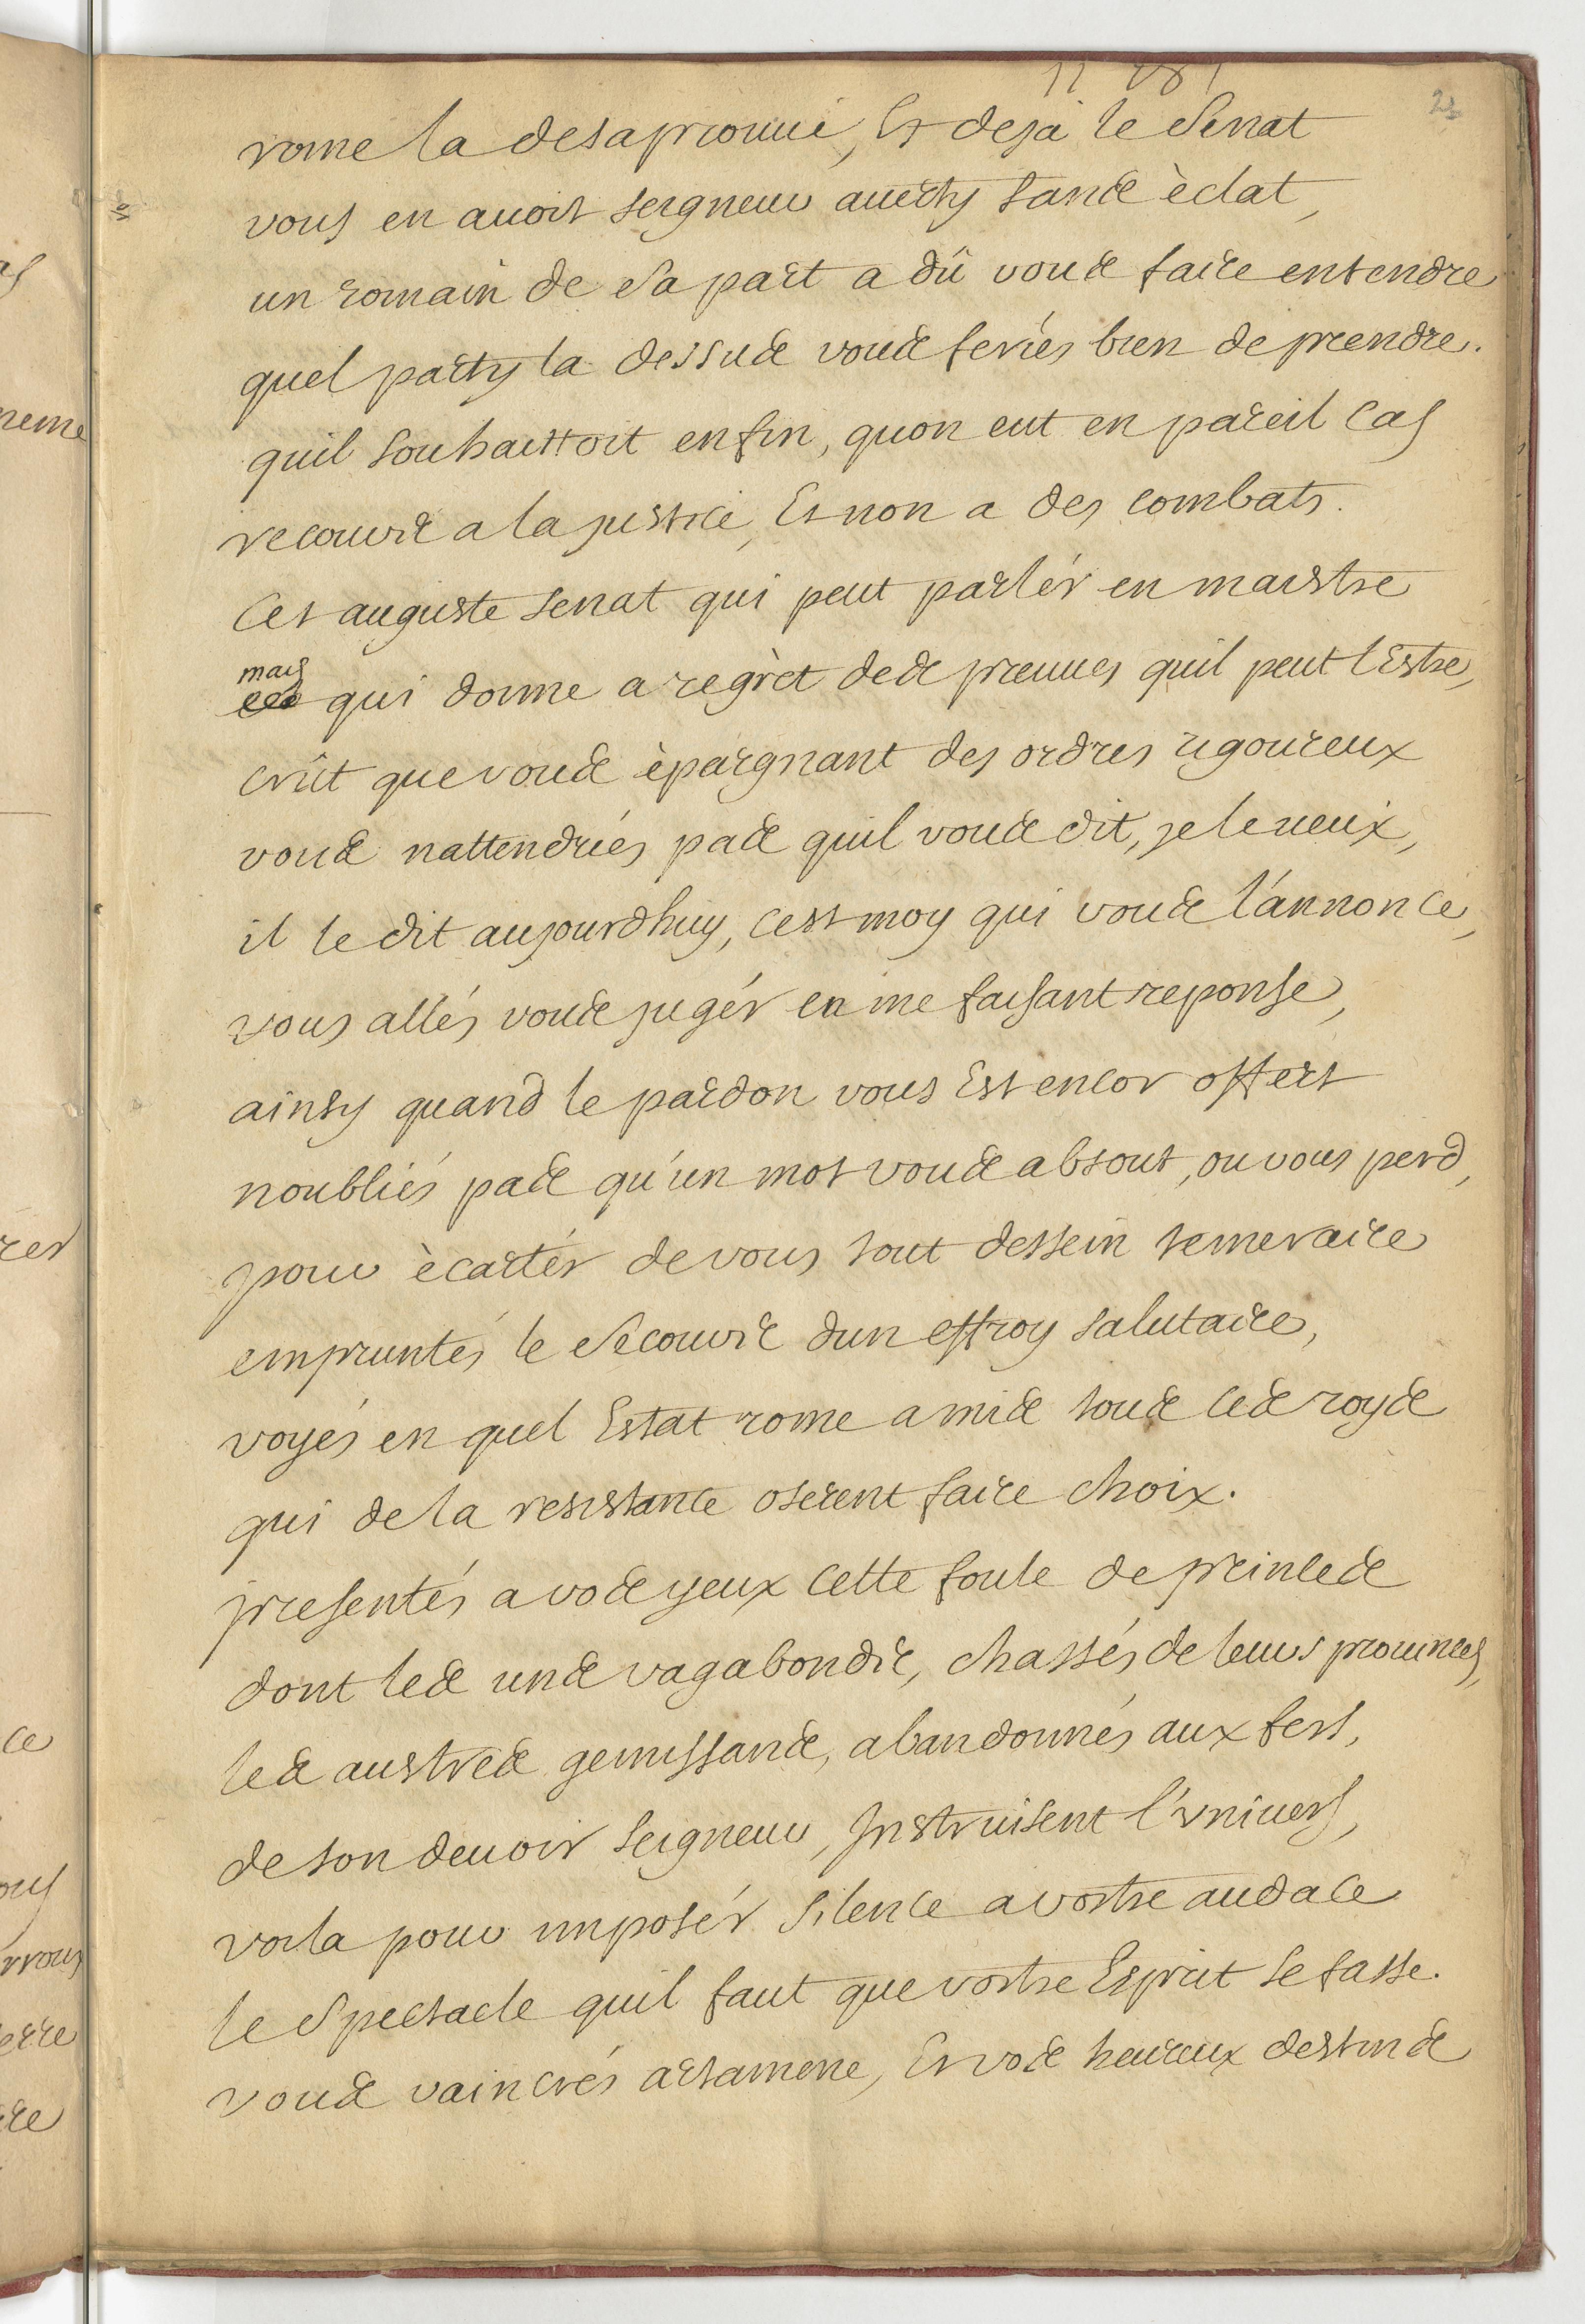 21
rome la desaprouue, Et deja le Senat
vous en avoit seigneur averty sans èclat,
un romain de Sa part a dû vous faire entendre
quel party la dessus vous feriés bien de prendre.
quil souhaittoit enfin, quon eut en pareil cas
recours a la justice, Et non a des combats.
Cet auguste senat qui peut parlér en maistre
mais
qui donne a regret des preuves quil peut lEstre,
crût que vous èpargnant des ordres rigoureux
vous nattendriés pas quil vous dit, je le veux,
il le dit aujourdhuy, cest moy qui vous l'annonce,
vous allés vous jugér en me faisant reponse,
ainsy quand le pardon vous Est encor offert
noubliés pas qu'un mot vous absout, ou vous perd,
pour ècartér de vous tout dessein temeraire
empruntés le Secours dun effroy salutaire,
voyés en quel Estat rome a mis tous ces roys
qui de la resistance oserent faire choix.
presentés a vos yeux cette foule de princes
dont les uns vagabonds, chassés de leurs provinces,
les austres gemissans, abandonnés aux fers,
de son devoir seigneur, Instruisent l'vnivers,
voila pour imposér silence a vostre audace
le Spectacle quil faut que vostre Esprit se fasse.
vous vaincrés artamene, Et vos heureux destins